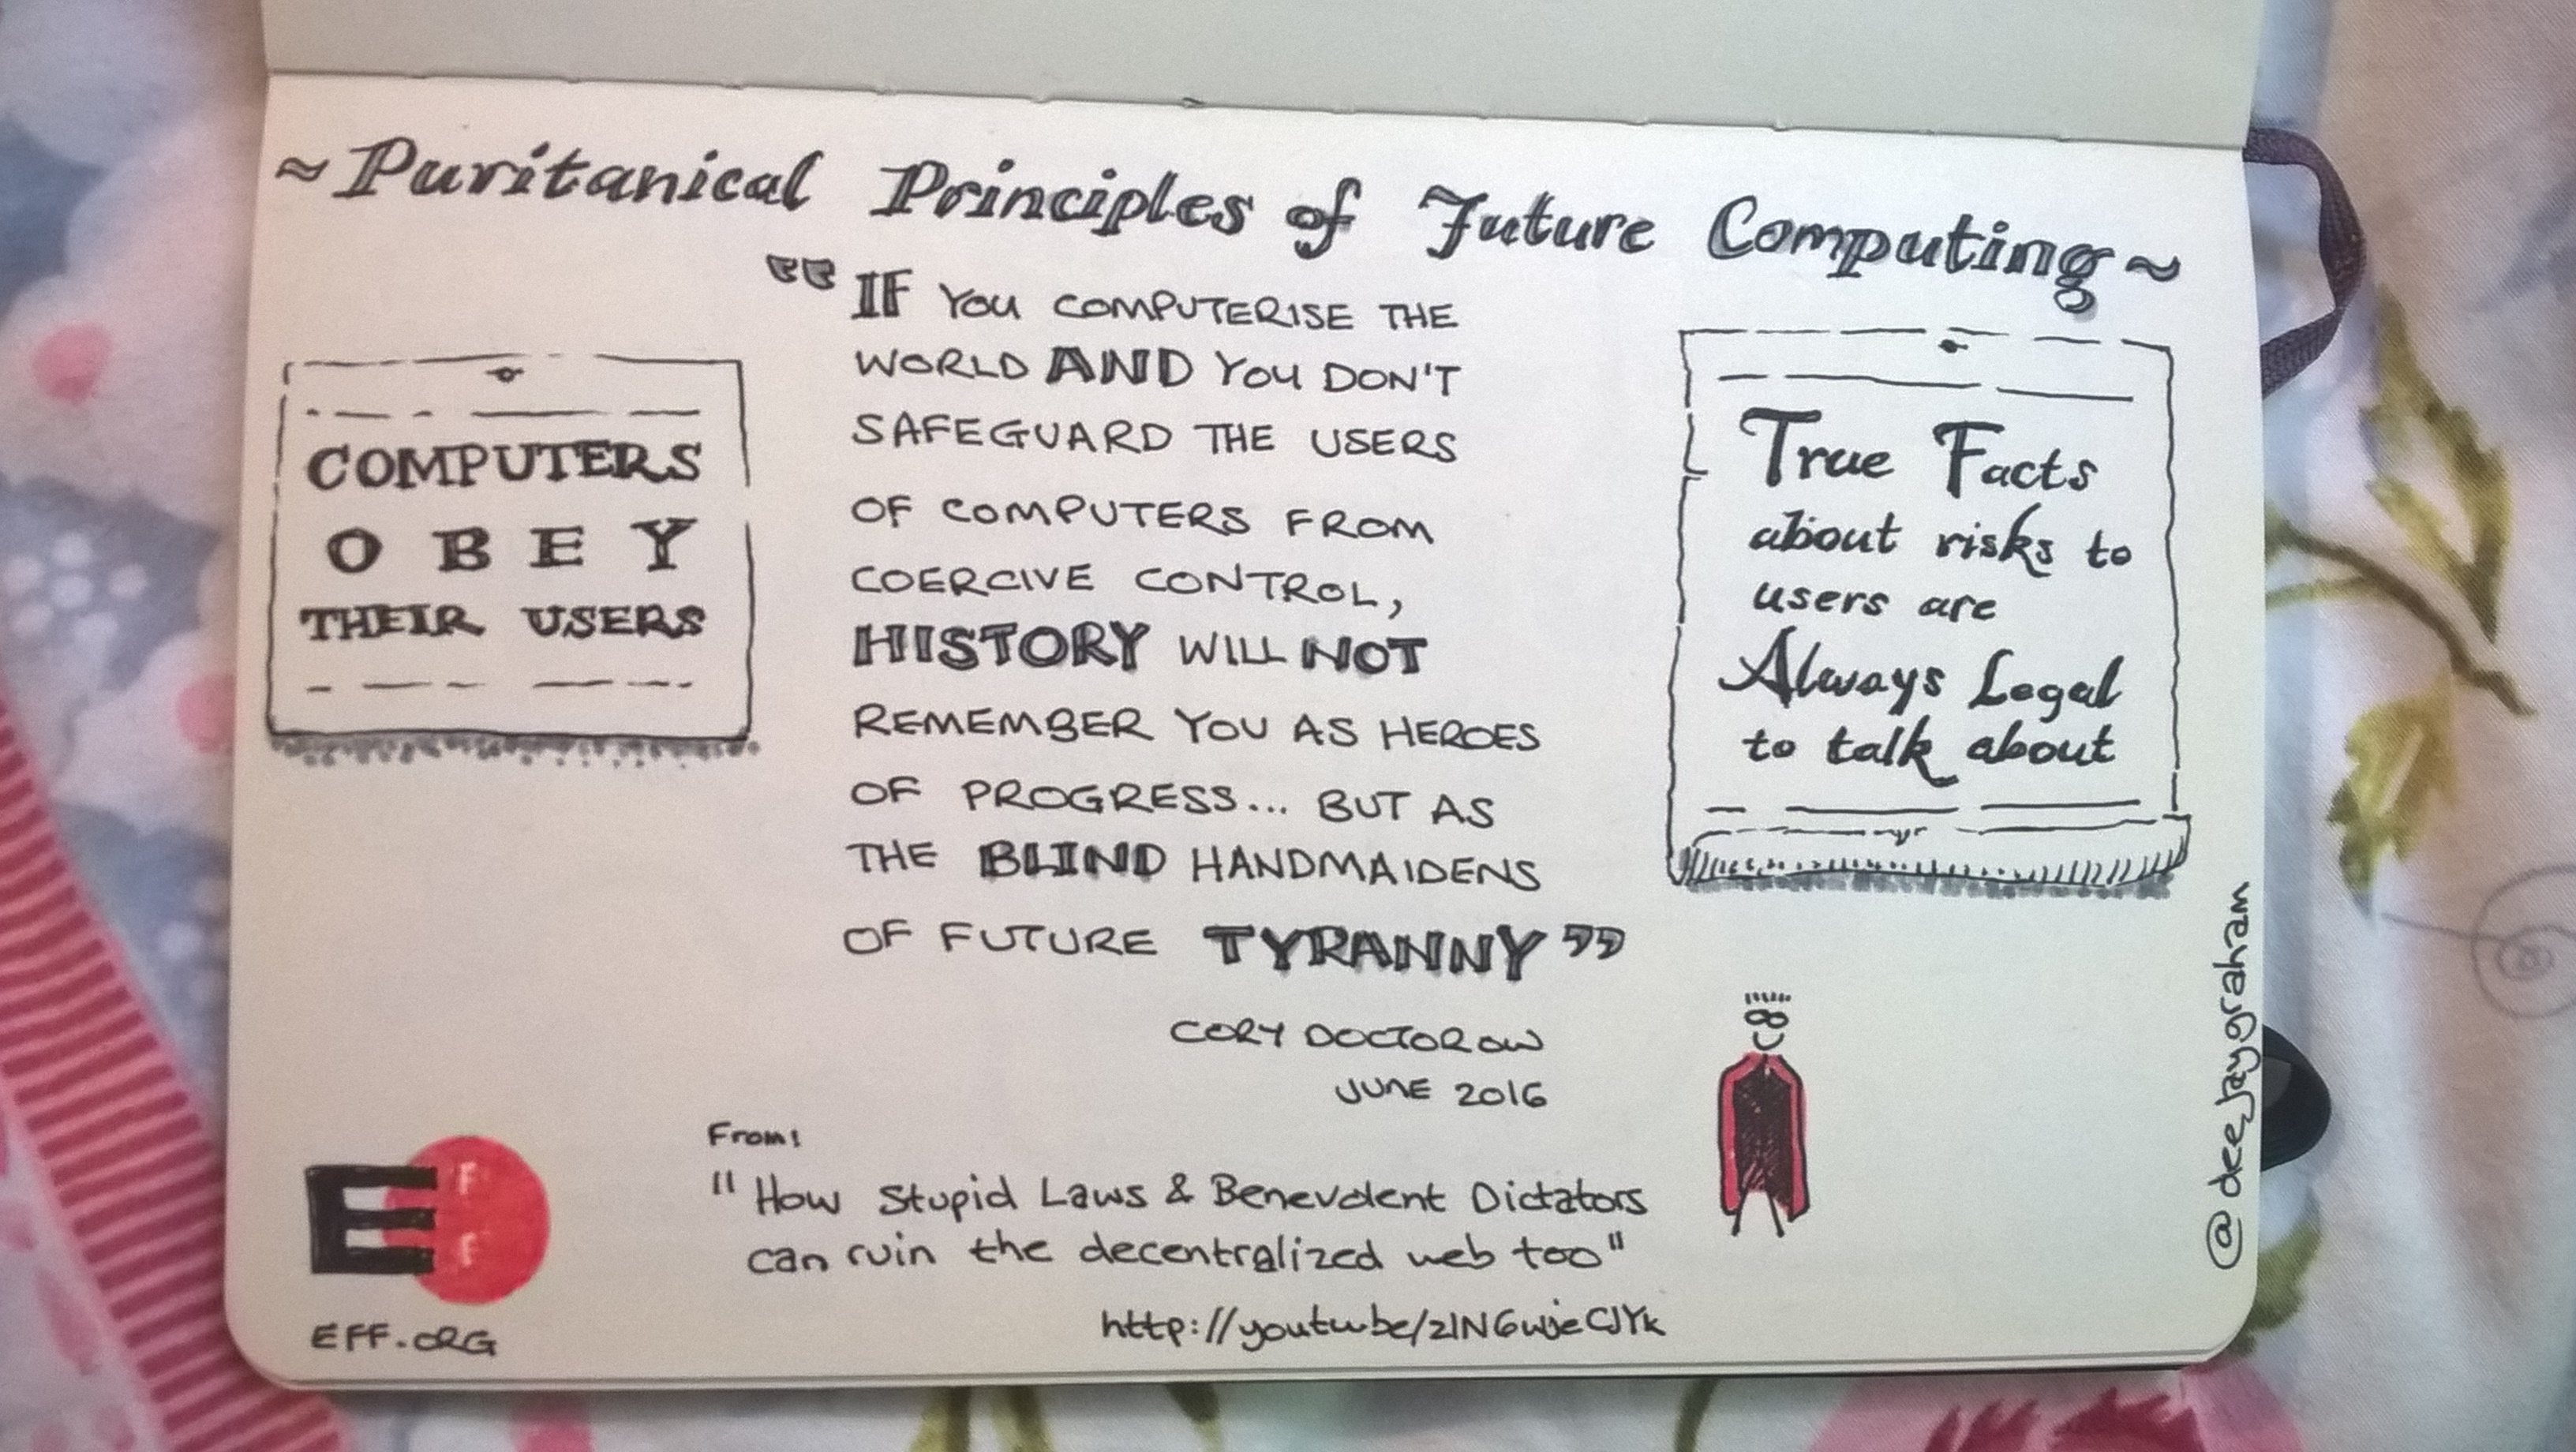 ~ Puritanical Principles of Future Computing ~
COMPUTERS
OBEY
THEIR USERS
"IF YOU COMPUTERISE THE
WORLD AND YOU DON'T
SAFEGUARD THE USERS
OF COMPUTERS FROM
COERCIVE CONTROL,
HISTORY WILL NOT
REMEMBER YOU AS HEROES
OF PROGRESS... BUT AS
THE BLIND HANDMAIDENS
OF FUTURE TYRANNY"
CORY DOCTOROW
JUNE 2016
True Facts
about risks to
users are
Always Legal
to talk about
From:
"How Stupid Laws & Benevolent Dictators
can ruin the decentralized web too"
EFF
EFF.ORG
@deejaygraham